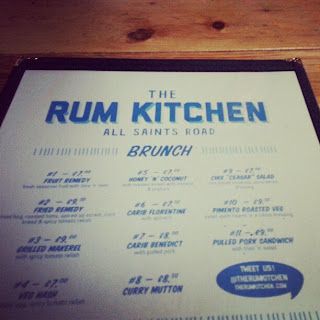 THE
RUM KITCHEN
ALL SAINTS ROAD
BRUNCH
#1 - £7.00
FRUIT REMEDY
#2 - £9.00
FRIED REMEDY
#3 - £9.00
GRILLED MAKEREL
with spicy tomato relish
#4 - £7.00
VEG HASH
spicy tomato relish
#5 - £7.00
HONEY 'N' COCONUT
#6 - £7.00
CARIB FLORENTINE
with spinach
#7 - £8.00
CARIB BENEDICT
with pulled pork
#8 - £8.50
CURRY MUTTON
CHIX "CEASAR" SALAD
PIMENTO ROASTED VEG
PULLED PORK SANDWICH
TWEET US!
@THERUMKITCHEN
THERUMKITCHEN.COM